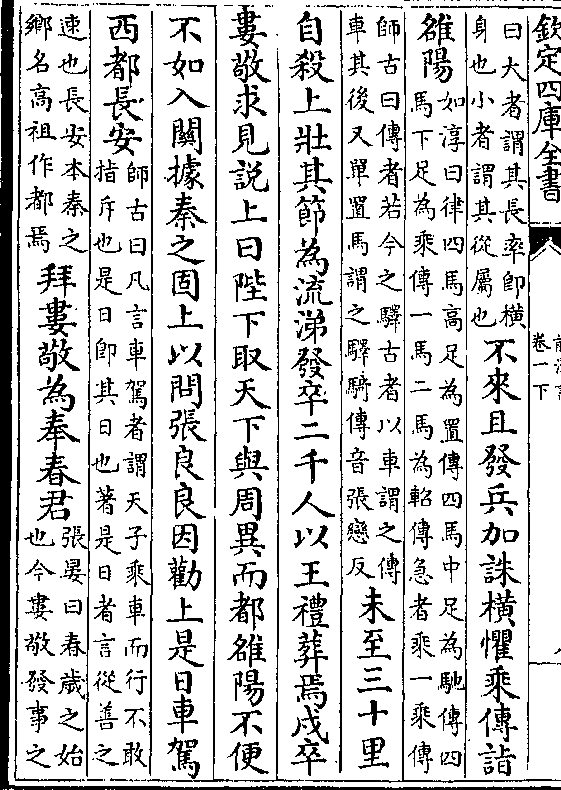 欽定四庫全書
卷一下
曰大者謂其長率卽橫
身也小者謂其從屬也
不來且發兵加誅橫懼乘傳詣
雒陽
如淳曰律四馬高足為置傳四馬中足為馳傳四
馬下足為乘傳一馬二馬為軺傳急者乘一乘傳
師古曰傳者若今之驛古者以車謂之傳
車其後又單置馬謂之驛騎傳音張戀反
未至三十里
自殺上壯其節為流涕發卒二千人以王禮葬焉戍卒
婁敬求見說上曰陛下取天下與周異而都雒陽不便
不如入關據秦之固上以問張良良因勸上是日車駕
西都長安
師古曰凡言車駕者謂天子乘車而行不敢
指斥也是日卽其日也著是日者言從善之
速也長安本秦之
鄉名高祖作都焉
拜婁敬為奉春君
張晏曰春歲之始
也今婁敬發事之